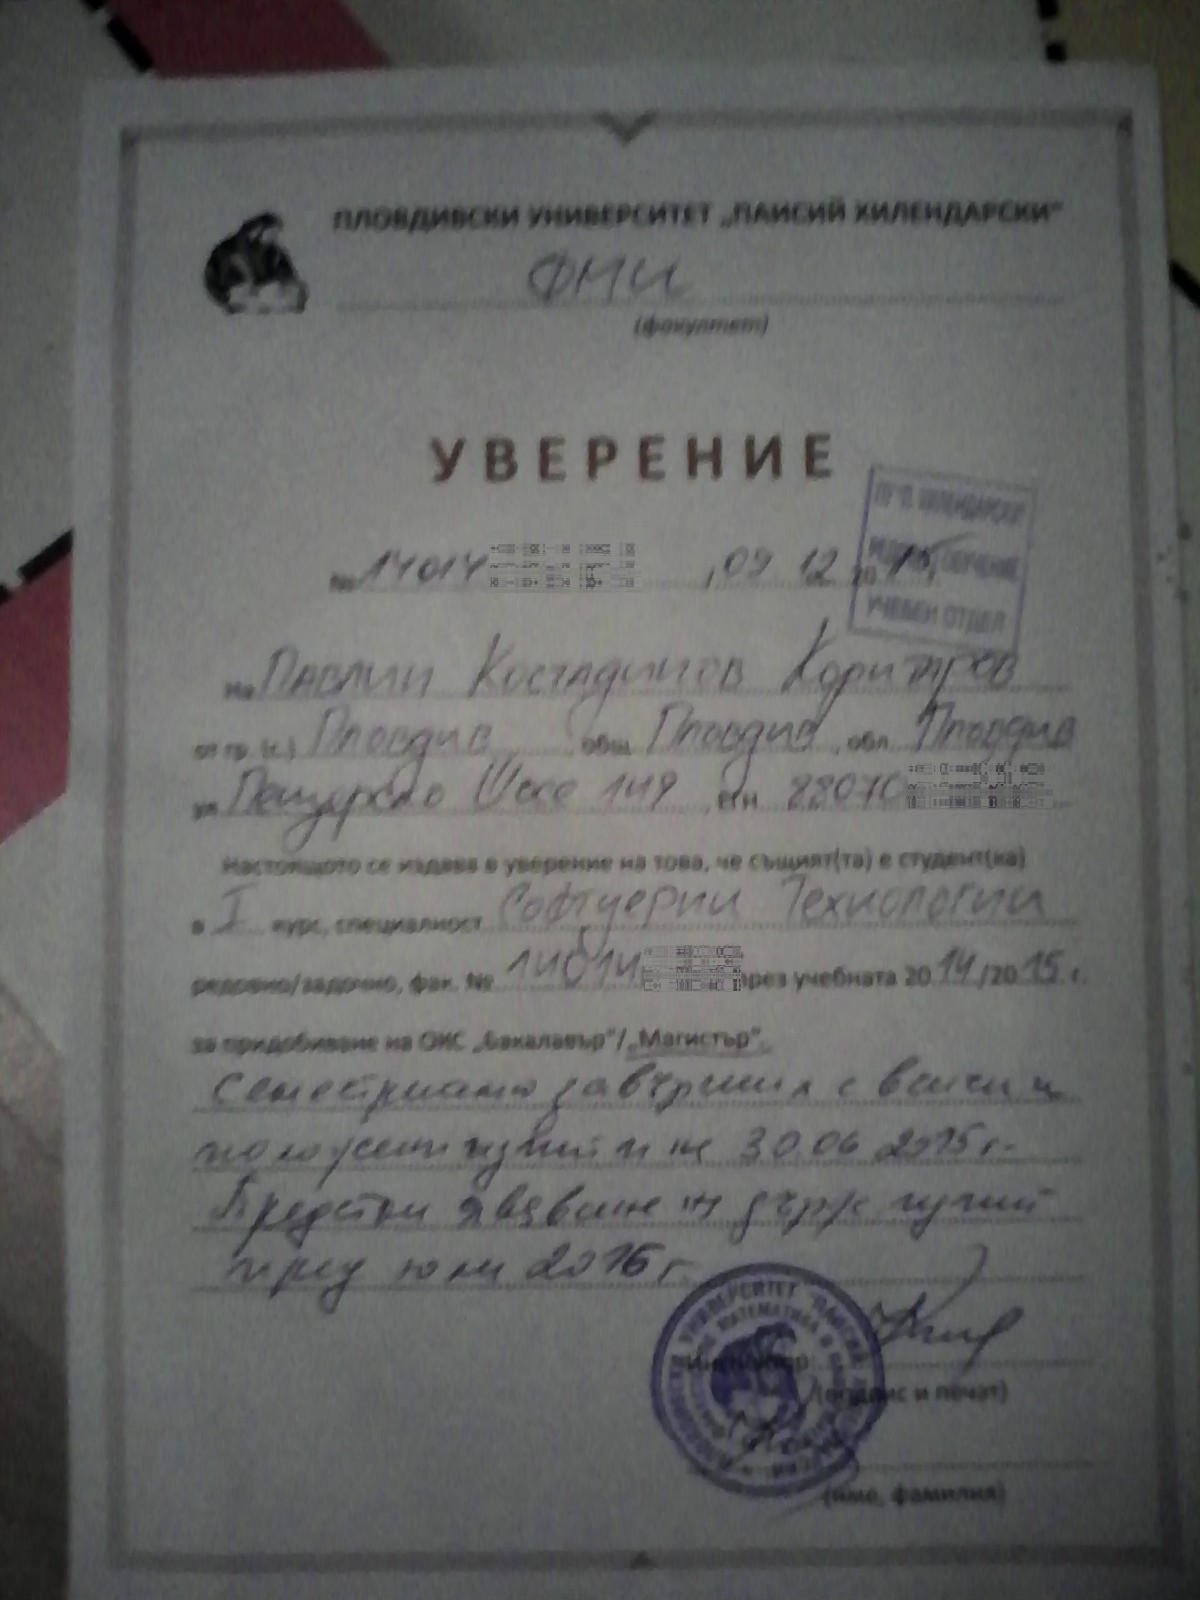 ПЛОВДИВСКИ УНИВЕРСИТЕТ „ПАИСИЙ ХИЛЕНДАРСКИ"
ФМИ
(факултет)
УВЕРЕНИЕ
ПУ "П. ХИЛЕНДАРСКИ"
ОБУЧЕНИЕ
УЧЕБЕН ОТДЕЛ
№ 14014 , 09 12 2015,
на Павлин Костадинов Коритаров
от гр. (с.) Пловдив общ. Пловдив, обл. Пловдив
ул. Пещерско Шосе 149, ЕГН 88070
Настоящото се издава в уверение на това, че същият(та) е студент(ка)
в I курс, специалност Софтуерни Технологии
редовно/задочно, фак. № 14014 през учебната 2014/2015 г.
за придобиване на ОКС „Бакалавър"/„Магистър".
Семестриално завършил с всички
положени изпити на 30.06 2015 г.
Предстои явяване на държ изпит
през юли 2016 г.
(подпис и печат)
(име, фамилия)